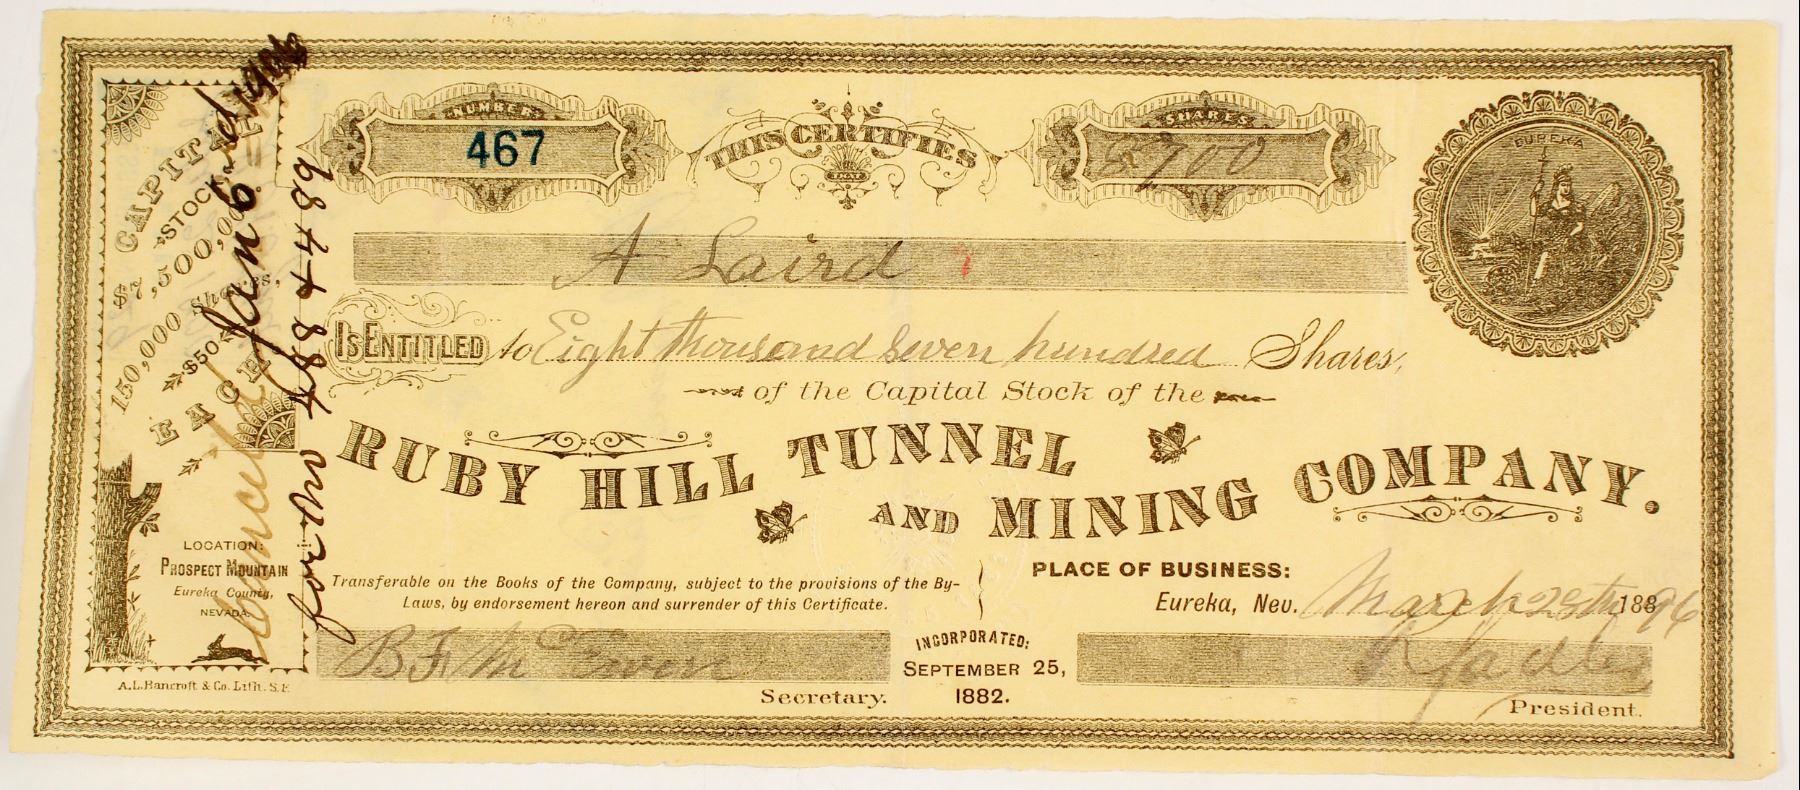 NUMBER
467
THIS CERTIFIES
THAT
SHARES
8700
EUREKA
A Laird
IS ENTITLED to Eight thousand seven hundred Shares,
of the Capital Stock of the
RUBY HILL TUNNEL
AND MINING COMPANY.
Transferable on the Books of the Company, subject to the provisions of the By-
Laws, by endorsement hereon and surrender of this Certificate.
PLACE OF BUSINESS:
Eureka, Nev. March 25th 1896
INCORPORATED:
SEPTEMBER 25,
1882.
Secretary.
R Sadler
President.
CAPITAL
STOCK
$7,500,000
150,000 Shares,
$50
EACH
LOCATION:
PROSPECT MOUNTAIN
Eureka County,
NEVADA.
A.L. Bancroft & Co. Lith. S.F.
Cancelled
Jan 6
1906
for no 488 + 489